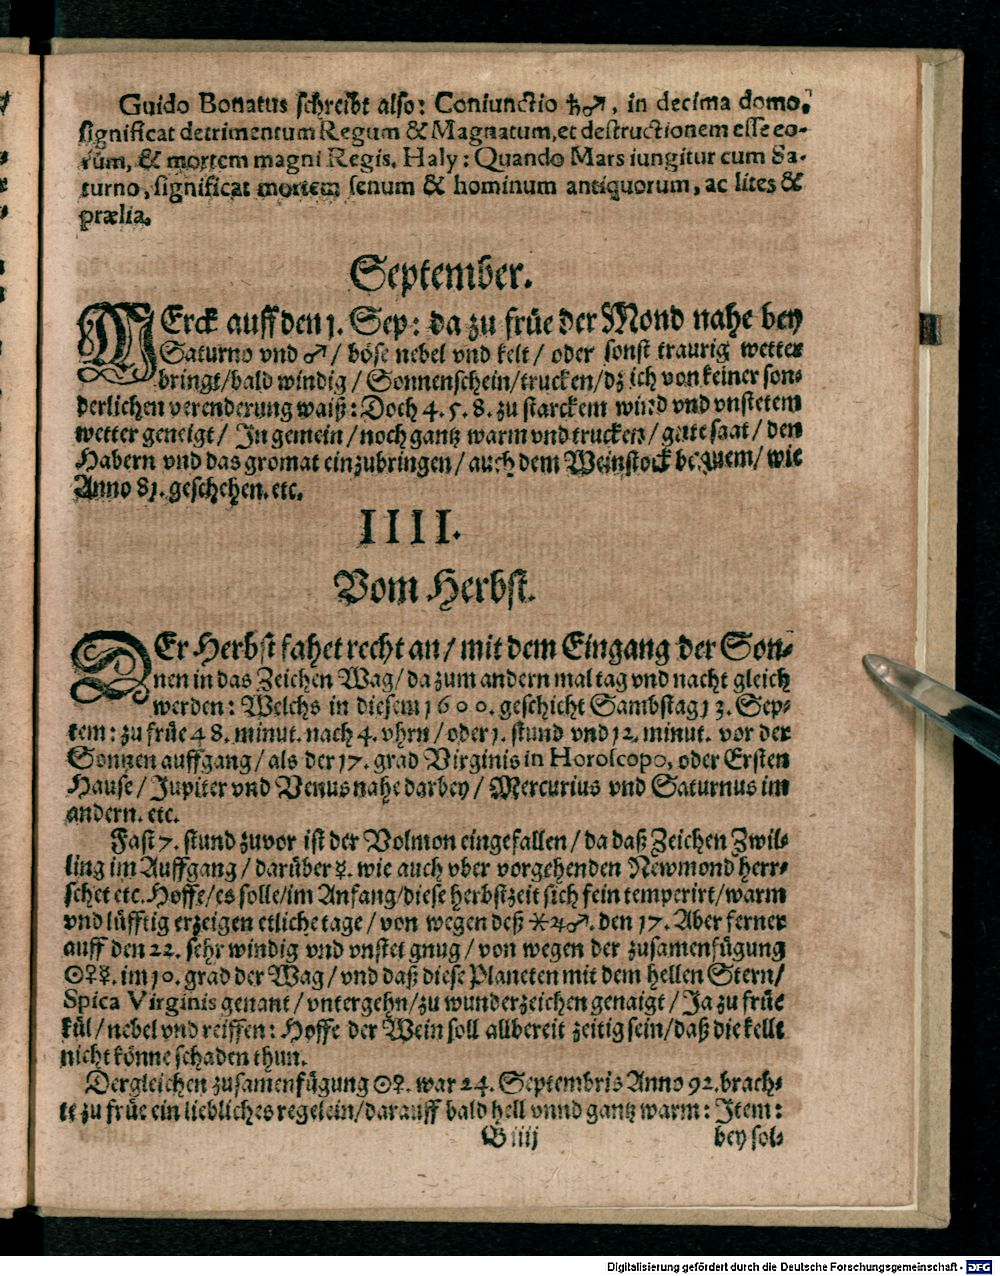 Guido Bonatus schreibt also: Coniunctio ♄♂, in decima domo,
significat detrimentum Regum & Magnatum, et destructionem esse eo-
rum, & mortem magni Regis. Haly: Quando Mars iungitur cum Sa-
turno, significat mortem senum & hominum antiquorum, ac lites &
prælia.
September.
MErck auff den 1. Sep: da zu früe der Mond nahe bey
Saturno vnd ♂/ böse nebel vnd kelt/ oder sonst traurig wetter
bringt/bald windig/ Sonnenschein/trucken/dz ich von keiner son-
derlichen verenderung waiß: Doch 4. 5. 8. zu starckem wind vnd vnstetem
wetter geneigt/ In gemein/ noch gantz warm vnd trucken/ gute saat/ den
Habern vnd das gromat einzubringen/ auch dem Weinstock bequem/ wie
Anno 81. geschehen. etc.
IIII.
Vom Herbst.
DEr Herbst fahet recht an/ mit dem Eingang der Son-
nen in das Zeichen Wag/ da zum andern mal tag vnd nacht gleich
werden: Welchs in diesem 1600. geschicht Sambstag 13. Sep-
tem: zu früe 48. minut. nach 4. vhrn/ oder 1. stund vnd 12. minut. vor der
Sonnen auffgang/ als der 17. grad Virginis in Horoscopo, oder Ersten
Hause/ Jupiter vnd Venus nahe darbey/ Mercurius vnd Saturnus im
andern. etc.
Fast 7. stund zuvor ist der Volmon eingefallen/ da daß Zeichen Zwil-
ling im Auffgang/ darüber ☿. wie auch vber vorgehenden Newmond herr-
schet etc. Hoffe/es solle/im Anfang/diese herbstzeit sich fein temperirt/warm
vnd lüfftig erzeigen etliche tage/ von wegen deß ⚹♃♂. den 17. Aber ferner
auff den 22. sehr windig vnd vnstet gnug/ von wegen der zusamenfügung
☉♀☿. im 10. grad der Wag/ vnd daß diese Planeten mit dem hellen Stern/
Spica Virginis genant/ vntergehn/zu wunderzeichen genaigt/ Ja zu früe
kül/ nebel vnd reiffen: Hoffe der Wein soll allbereit zeitig sein/daß die kelt
nicht könne schaden thun.
Dergleichen zusamenfügung ☉♀. war 24. Septembris Anno 92. brach-
te zu früe ein liebliches regelein/darauff bald hell vnnd gantz warm: Item:
G iiij bey sol-
Digitalisierung gefördert durch die Deutsche Forschungsgemeinschaft - DFG